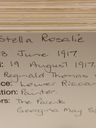 Stella Rosalie
8 June 1917
: 19 August 1917.
Reginald Thomas
ce: Lower Riccar
tion: Painter
ors: The Parents
Georgina May S